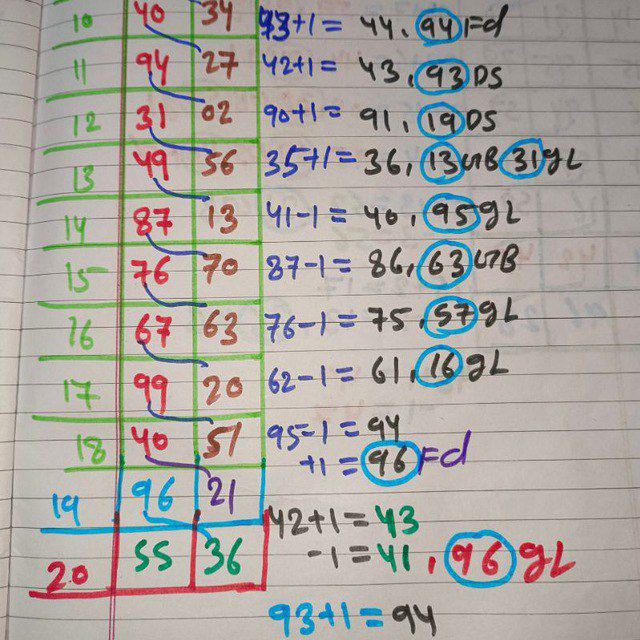 10 40 34 93+1 = 44, 94 Fd
11 94 27 42+1 = 43, 93 DS
12 31 02 90+1 = 91, 19 DS
13 49 56 35+1 = 36, 13 GB 31 gL
14 87 13 41-1 = 40, 95 gL
15 76 70 87-1 = 86, 63 GB
16 67 63 76-1 = 75, 57 gL
17 99 20 62-1 = 61, 16 gL
18 40 51 95-1 = 94
+1 = 96 Fd
19 96 21 42+1 = 43
20 55 36 -1 = 41, 96 gL
93+1 = 94